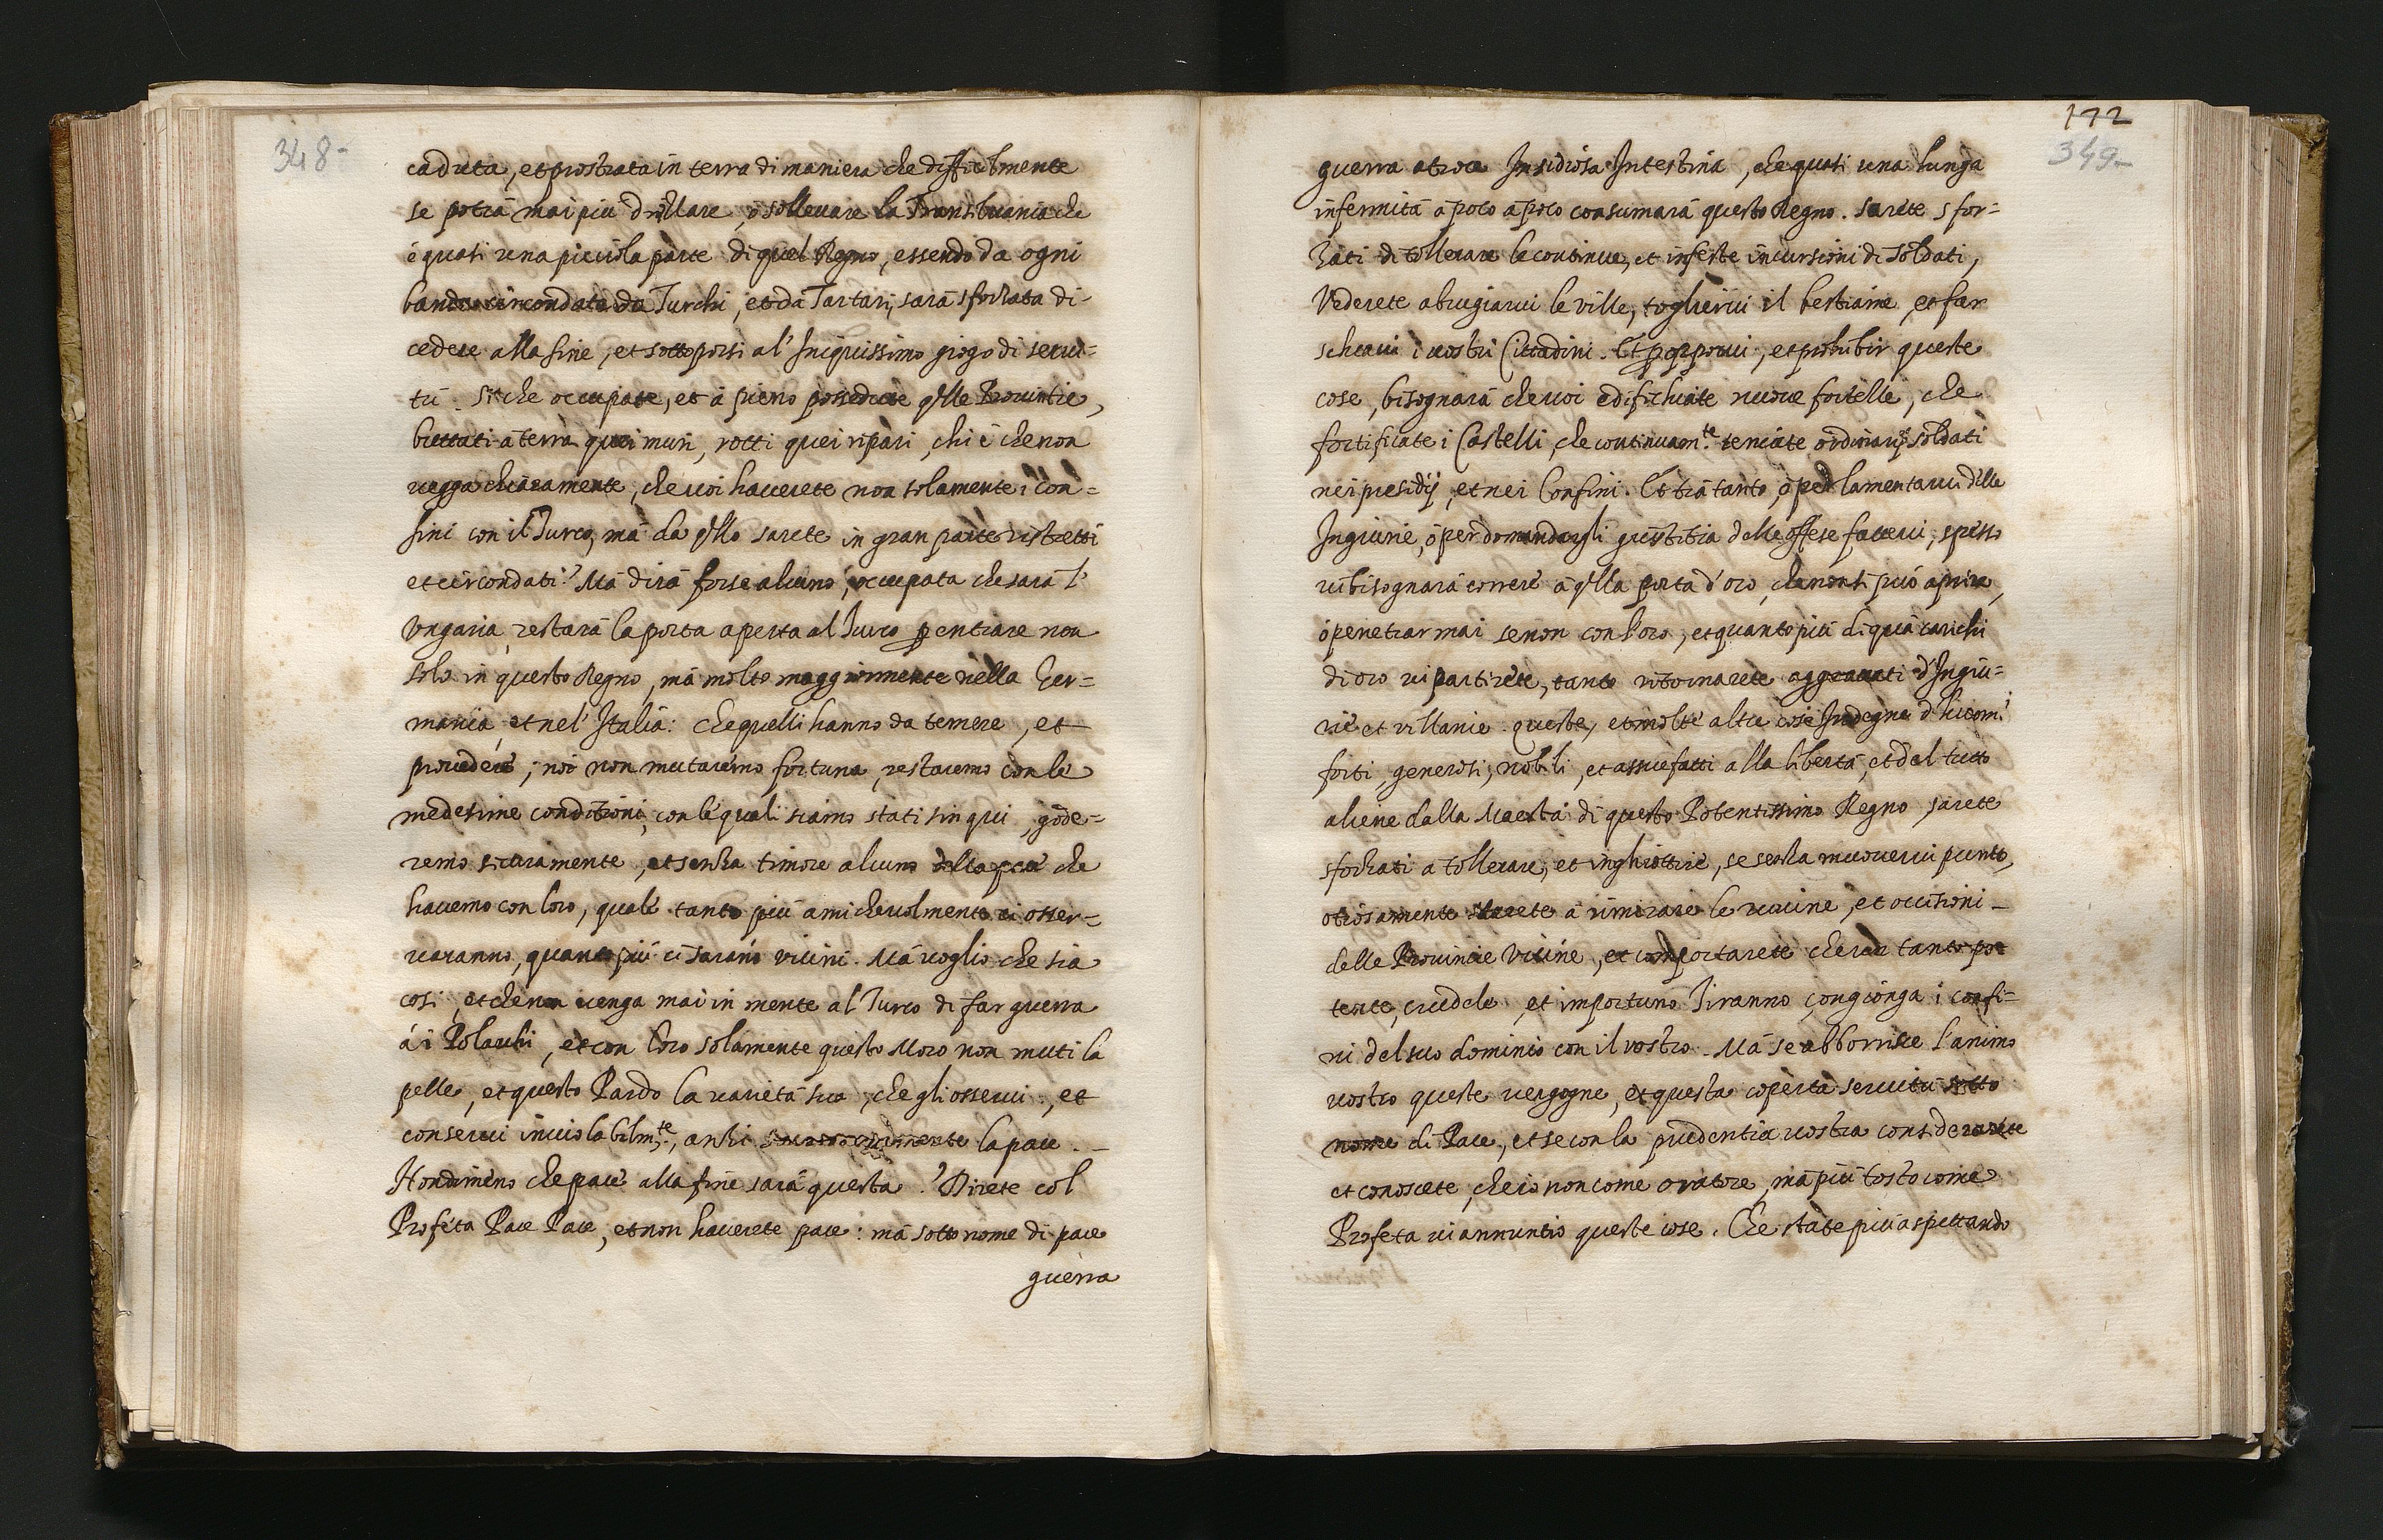 348-
caduta, et prostrata in terra di maniera che difficilmente
se potrà mai più drizzare, ò solleuare la Transiluania che
è quasi una picciola parte di quel Regno, essendo da ogni
banda circondata da Turchi, et dà Tartari, sarà sforzata di
cedere alla fine, et sottoporsi al' Iniquissimo giogo di serui=
tù. Siche occupate, et à pieno possedute q̃lle Prouintie,
buttati à terra quei muri, rotti quei ripari, chi è che non
uegga chiaramente, che uoi hauerete non solamente i con=
fini con il Turco, mà da q̃llo sarete in gran parte ristretti
et circondati? Mà dirà forse alcuno, occupata che sarà l'
Vngaria, restarà la porta aperta al Turco p entrare non
solo in questo Regno, mà molto maggiormente nella Ger=
mania, et nel' Italia: che quelli hanno da temere, et
prouedere; noi non mutaremo fortuna, restaremo con le
medesime conditioni, con le quali siamo stati sin qui, gode=
remo sicuramente, et senza timore alcuno della pace che
hauemo con loro, quale tanto più amicheuolmente ci osser=
uaranno, quanto più ci sarano uicini. Mà uoglio che sia
cosi, et che non uenga mai in mente al Turco di far guerra
á i Polacchi, et con loro solamente questo Moro non muti la
pelle, et questo Pardo la uarietà sua, che gli osserui, et
conserui inuiolabilm.te, anzi la pace.
Nondimeno che pace alla fine sarà questa? Direte col
Profeta Pace Pace, et non hauerete pace: mà sotto nome di pace
guerra
172
349-
guerra atroce Insidiosa Intestina, che quasi una lunga
infermità à poco à poco consumarà questo Regno. Sarete sfor=
zati di tollerare le continue, et infeste incursioni di soldati,
Vederete abrugiarui le ville, toglierui il bestiame, et far
schiaui i uostri Cittadini. Et p opporui, et prohibir queste
cose, bisognarà che uoi edifichiate nuoue fortezze, che
fortificate i Castelli, che continuam.te teniate ordinarij soldati
nei presidij, et nei Confini. Et trà tanto, ò per lamentarui d'lle
Ingiurie, ò per domandargli giustitia delle offese fatteui, spesso
ui bisognarà correre à q̃lla porta d'oro, che non si può aprire,
ò penetrar mai se non con l'oro, et quanto più di quà carichi
di oro ui partirete, tanto ritornarete aggrauati d'Ingiu=
rie et uillanie. queste, et molte altre cose Indegne d'huomi
forti, generosi, nobili, et assuefatti alla libertà, et del tutto
aliene dalla Maestà di questo Potentissimo Regno sarete
sforzati a tollerare, et inghiottire, se senza muouerui punto,
otiosamente starete à rimirare le ruuine, et occisioni
delle Prouincie Vicine, et comportarete che un tanto po=
tente, crudele, et importuno Tiranno, congionga i confi=
ni del suo dominio con il vostro. Mà se abborrisce l'animo
uostro queste uergogne, et questa coperta seruitù sotto
nome di Pace, et se con la prudentia uostra considerarete
et conoscete, che io non come oratore, mà più tosto come
Profeta ui annuntio queste cose. Che state più aspettando